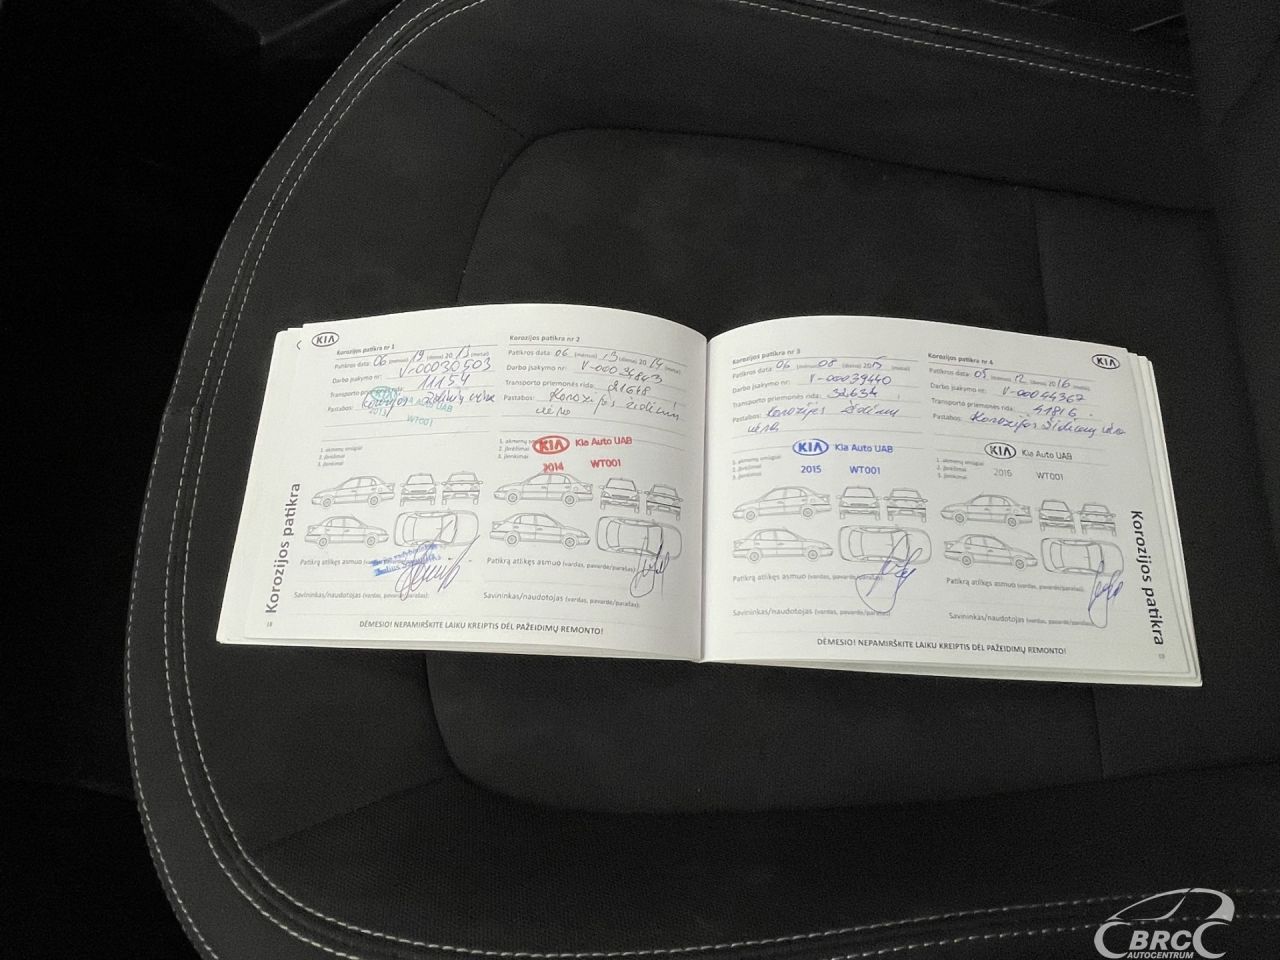 KIA
Korozijos patikra nr 1
Patikros data: 06 (mėnuo) 19 (diena) 20 13 (metai)
Darbo įsakymo nr: V-00030503
Transporto priemonės rida: 11154
Pastabos: Korozijos židinių nėra
Kia Auto UAB
2013 WT001
1. akmenų smūgiai
2. įbrėžimai
3. įlenkimai
Patikrą atlikęs asmuo
Savininkas/naudotojas (vardas, pavardė/parašas):
Korozijos patikra
18
Korozijos patikra nr 2
Patikros data: 06 (mėnuo) 13 (diena) 20 14 (metai)
Darbo įsakymo nr: V-00034843
Transporto priemonės rida: 21648
Pastabos: Korozijos židinių
nėra
KIA Kia Auto UAB
2014 WT001
2. įbrėžimai
3. įlenkimai
Patikrą atlikęs asmuo (vardas, pavardė/parašas):
Savininkas/naudotojas (vardas, pavardė/parašas):
DĖMESIO! NEPAMIRŠKITE LAIKU KREIPTIS DĖL PAŽEIDIMŲ REMONTO!
Korozijos patikra nr 3
Patikros data: 06 (mėnuo) 08 (diena) 2015 (metai)
Darbo įsakymo nr: V-00039440
Transporto priemonės rida: 32634
Pastabos: Korozijos židinių
nėra
KIA Kia Auto UAB
2015 WT001
1. akmenų smūgiai
2. įbrėžimai
3. įlenkimai
Patikrą atlikęs asmuo (vardas, pavardė/parašas):
Savininkas/naudotojas (vardas, pavardė/parašas):
Korozijos patikra nr 4
KIA
Patikros data: 05 (mėnuo) 12 (diena) 2016 (metai)
Darbo įsakymo nr: V-00044367
Transporto priemonės rida: 41816
Pastabos: Korozijos židinių nėra
KIA Kia Auto UAB
2016 WT001
1. akmenų smūgiai
2. įbrėžimai
3. įlenkimai
Patikrą atlikęs asmuo (vardas, pavardė/parašas):
Savininkas/naudotojas (vardas, pavardė/parašas):
DĖMESIO! NEPAMIRŠKITE LAIKU KREIPTIS DĖL PAŽEIDIMŲ REMONTO!
Korozijos patikra
BRC
AUTOCENTRUM